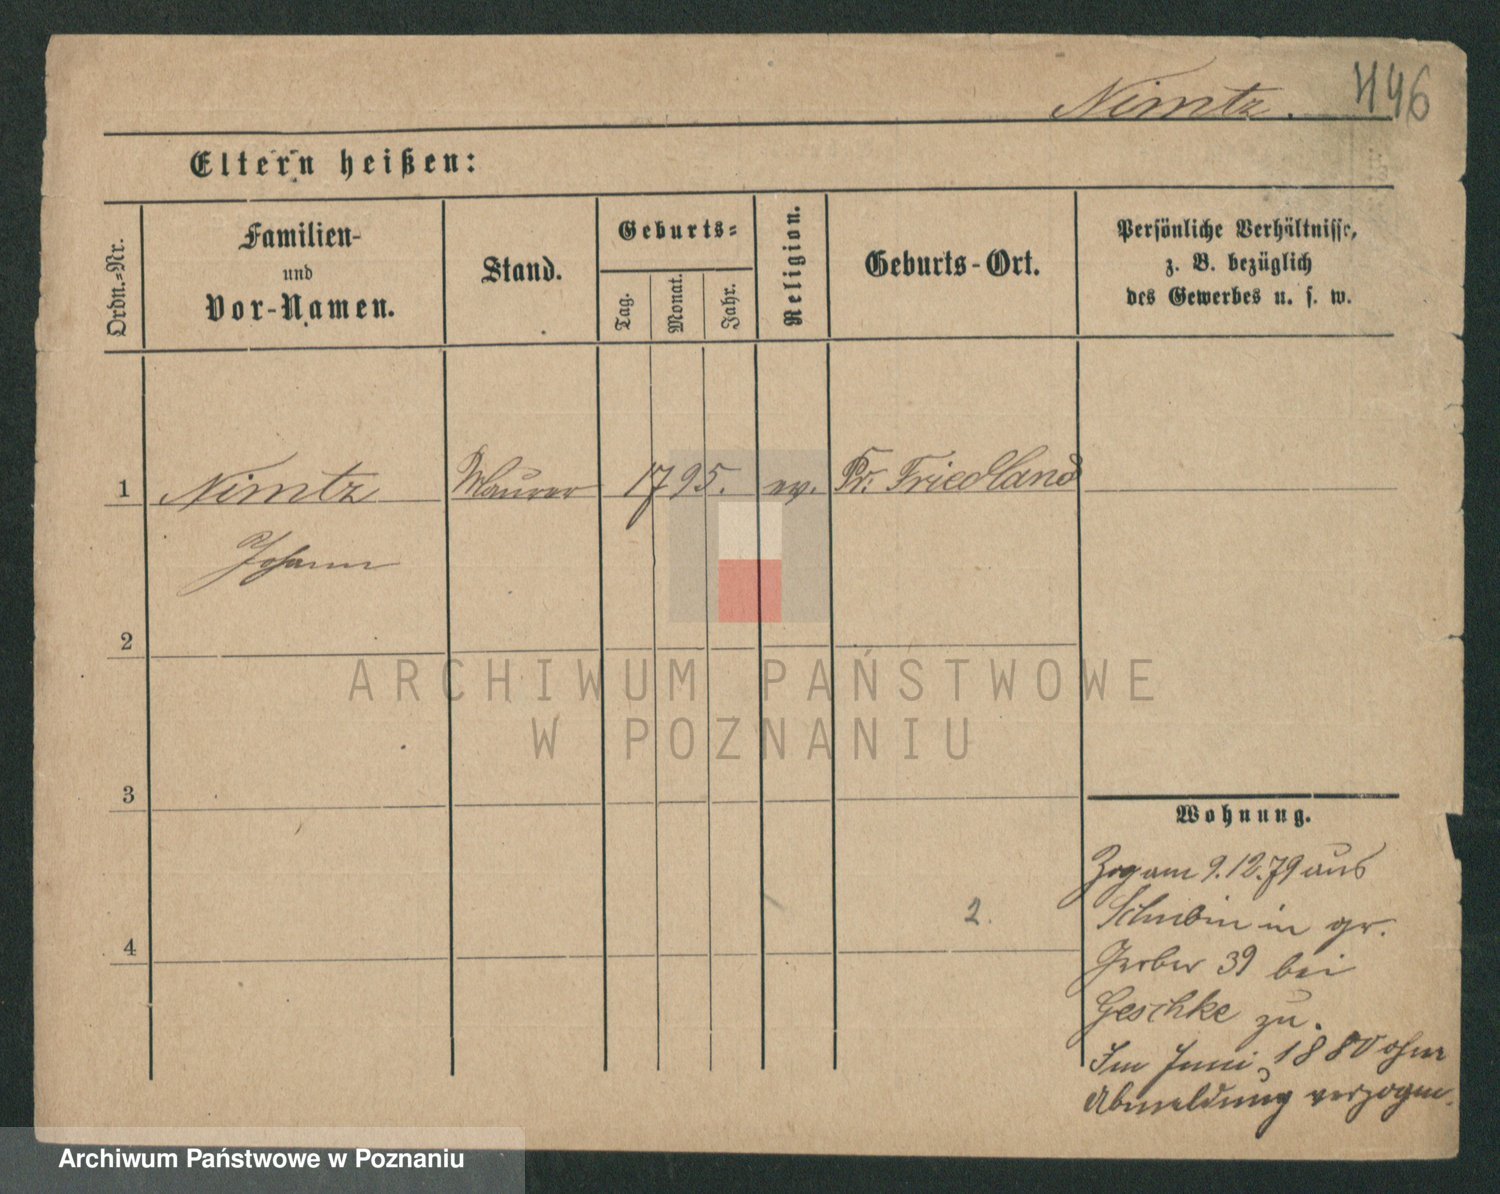 Nimtz. 446
Eltern heißen:
Ordn.-Nr.
Familien-
und
Vor-Namen.
Stand.
Geburts-
Tag.
Monat.
Jahr.
Religion.
Geburts-Ort.
Persönliche Verhältnisse,
z. B. bezüglich
des Gewerbes u. s. w.
1 Nimtz Maurer 1795. ev. Pr. Friedland
Johann
2
3
4
2.
Wohnung.
Zog am 9.12.79 aus
Schubin in gr.
Gerber 39 bei
Geschke zu.
Im Juni 1880 ohne
Abmeldung verzogen.
ARCHIWUM PAŃSTWOWE
W POZNANIU
Archiwum Państwowe w Poznaniu